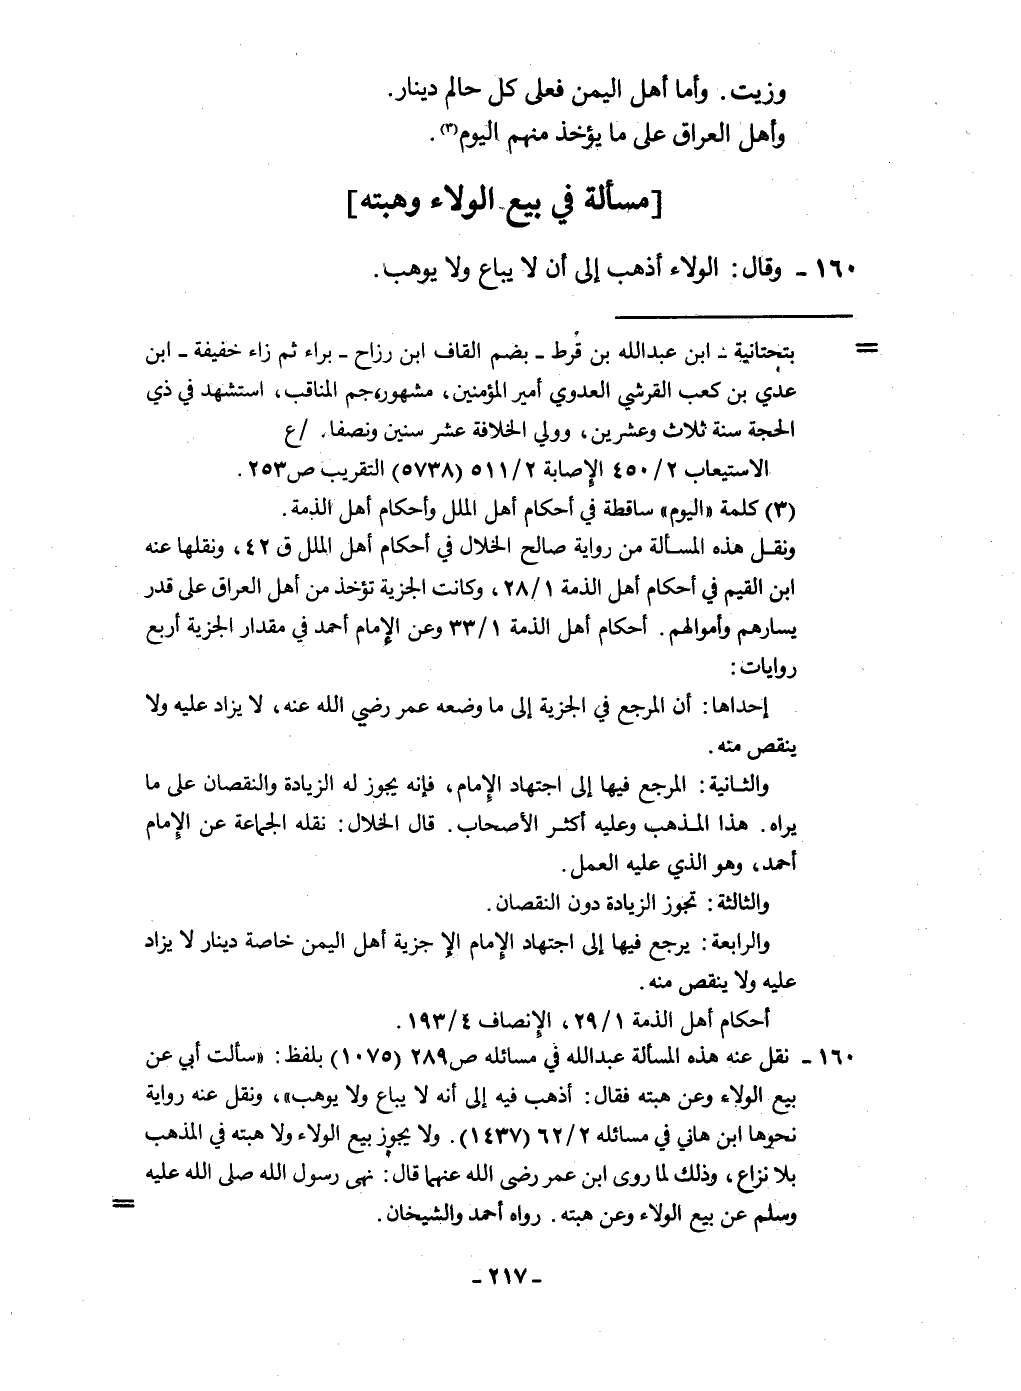 وزيت. وأما أهل اليمن فعلى كل حالم دينار.
وأهل العراق على ما يؤخذ منهم اليوم(٣).
[مسألة في بيع الولاء وهبته]
١٦٠ ـ وقال: الولاء أذهب إلى أن لا يباع ولا يوهب.
= بتحتانية ـ ابن عبدالله بن قُرط ـ بضم القاف ابن رزاح ـ براء ثم زاء خفيفة ـ ابن
عدي بن كعب القرشي العدوي أمير المؤمنين، مشهور، جم المناقب، استشهد في ذي
الحجة سنة ثلاث وعشرين، وولي الخلافة عشر سنين ونصفا. /ع
الاستيعاب ٤٥٠/٢ الإصابة ٥١١/٢ (٥٧٣٨) التقريب ص٢٥٣.
(٣) كلمة «اليوم» ساقطة في أحكام أهل الملل وأحكام أهل الذمة.
ونقل هذه المسألة من رواية صالح الخلال في أحكام أهل الملل ق ٤٢، ونقلها عنه
ابن القيم في أحكام أهل الذمة ٢٨/١، وكانت الجزية تؤخذ من أهل العراق على قدر
يسارهم وأموالهم. أحكام أهل الذمة ٣٣/١ وعن الإمام أحمد في مقدار الجزية أربع
روايات:
إحداها: أن المرجع في الجزية إلى ما وضعه عمر رضي الله عنه، لا يزاد عليه ولا
ينقص منه.
والثانية: المرجع فيها إلى اجتهاد الإمام، فإنه يجوز له الزيادة والنقصان على ما
يراه. هذا المذهب وعليه أكثر الأصحاب. قال الخلال: نقله الجماعة عن الإمام
أحمد، وهو الذي عليه العمل.
والثالثة: تجوز الزيادة دون النقصان.
والرابعة: يرجع فيها إلى اجتهاد الإمام الإ جزية أهل اليمن خاصة دينار لا يزاد
عليه ولا ينقص منه.
أحكام أهل الذمة ٢٩/١، الإنصاف ١٩٣/٤.
١٦٠ ـ نقل عنه هذه المسألة عبدالله في مسائله ص٢٨٩ (١٠٧٥) بلفظ: «سألت أبي عن
بيع الولاء وعن هبته فقال: أذهب فيه إلى أنه لا يباع ولا يوهب»، ونقل عنه رواية
نحوها ابن هاني في مسائله ٦٢/٢ (١٤٣٧). ولا يجوز بيع الولاء ولا هبته في المذهب
بلا نزاع، وذلك لما روى ابن عمر رضي الله عنهما قال: نهى رسول الله صلى الله عليه
وسلم عن بيع الولاء وعن هبته. رواه أحمد والشيخان. =
ـ ٢١٧ ـ